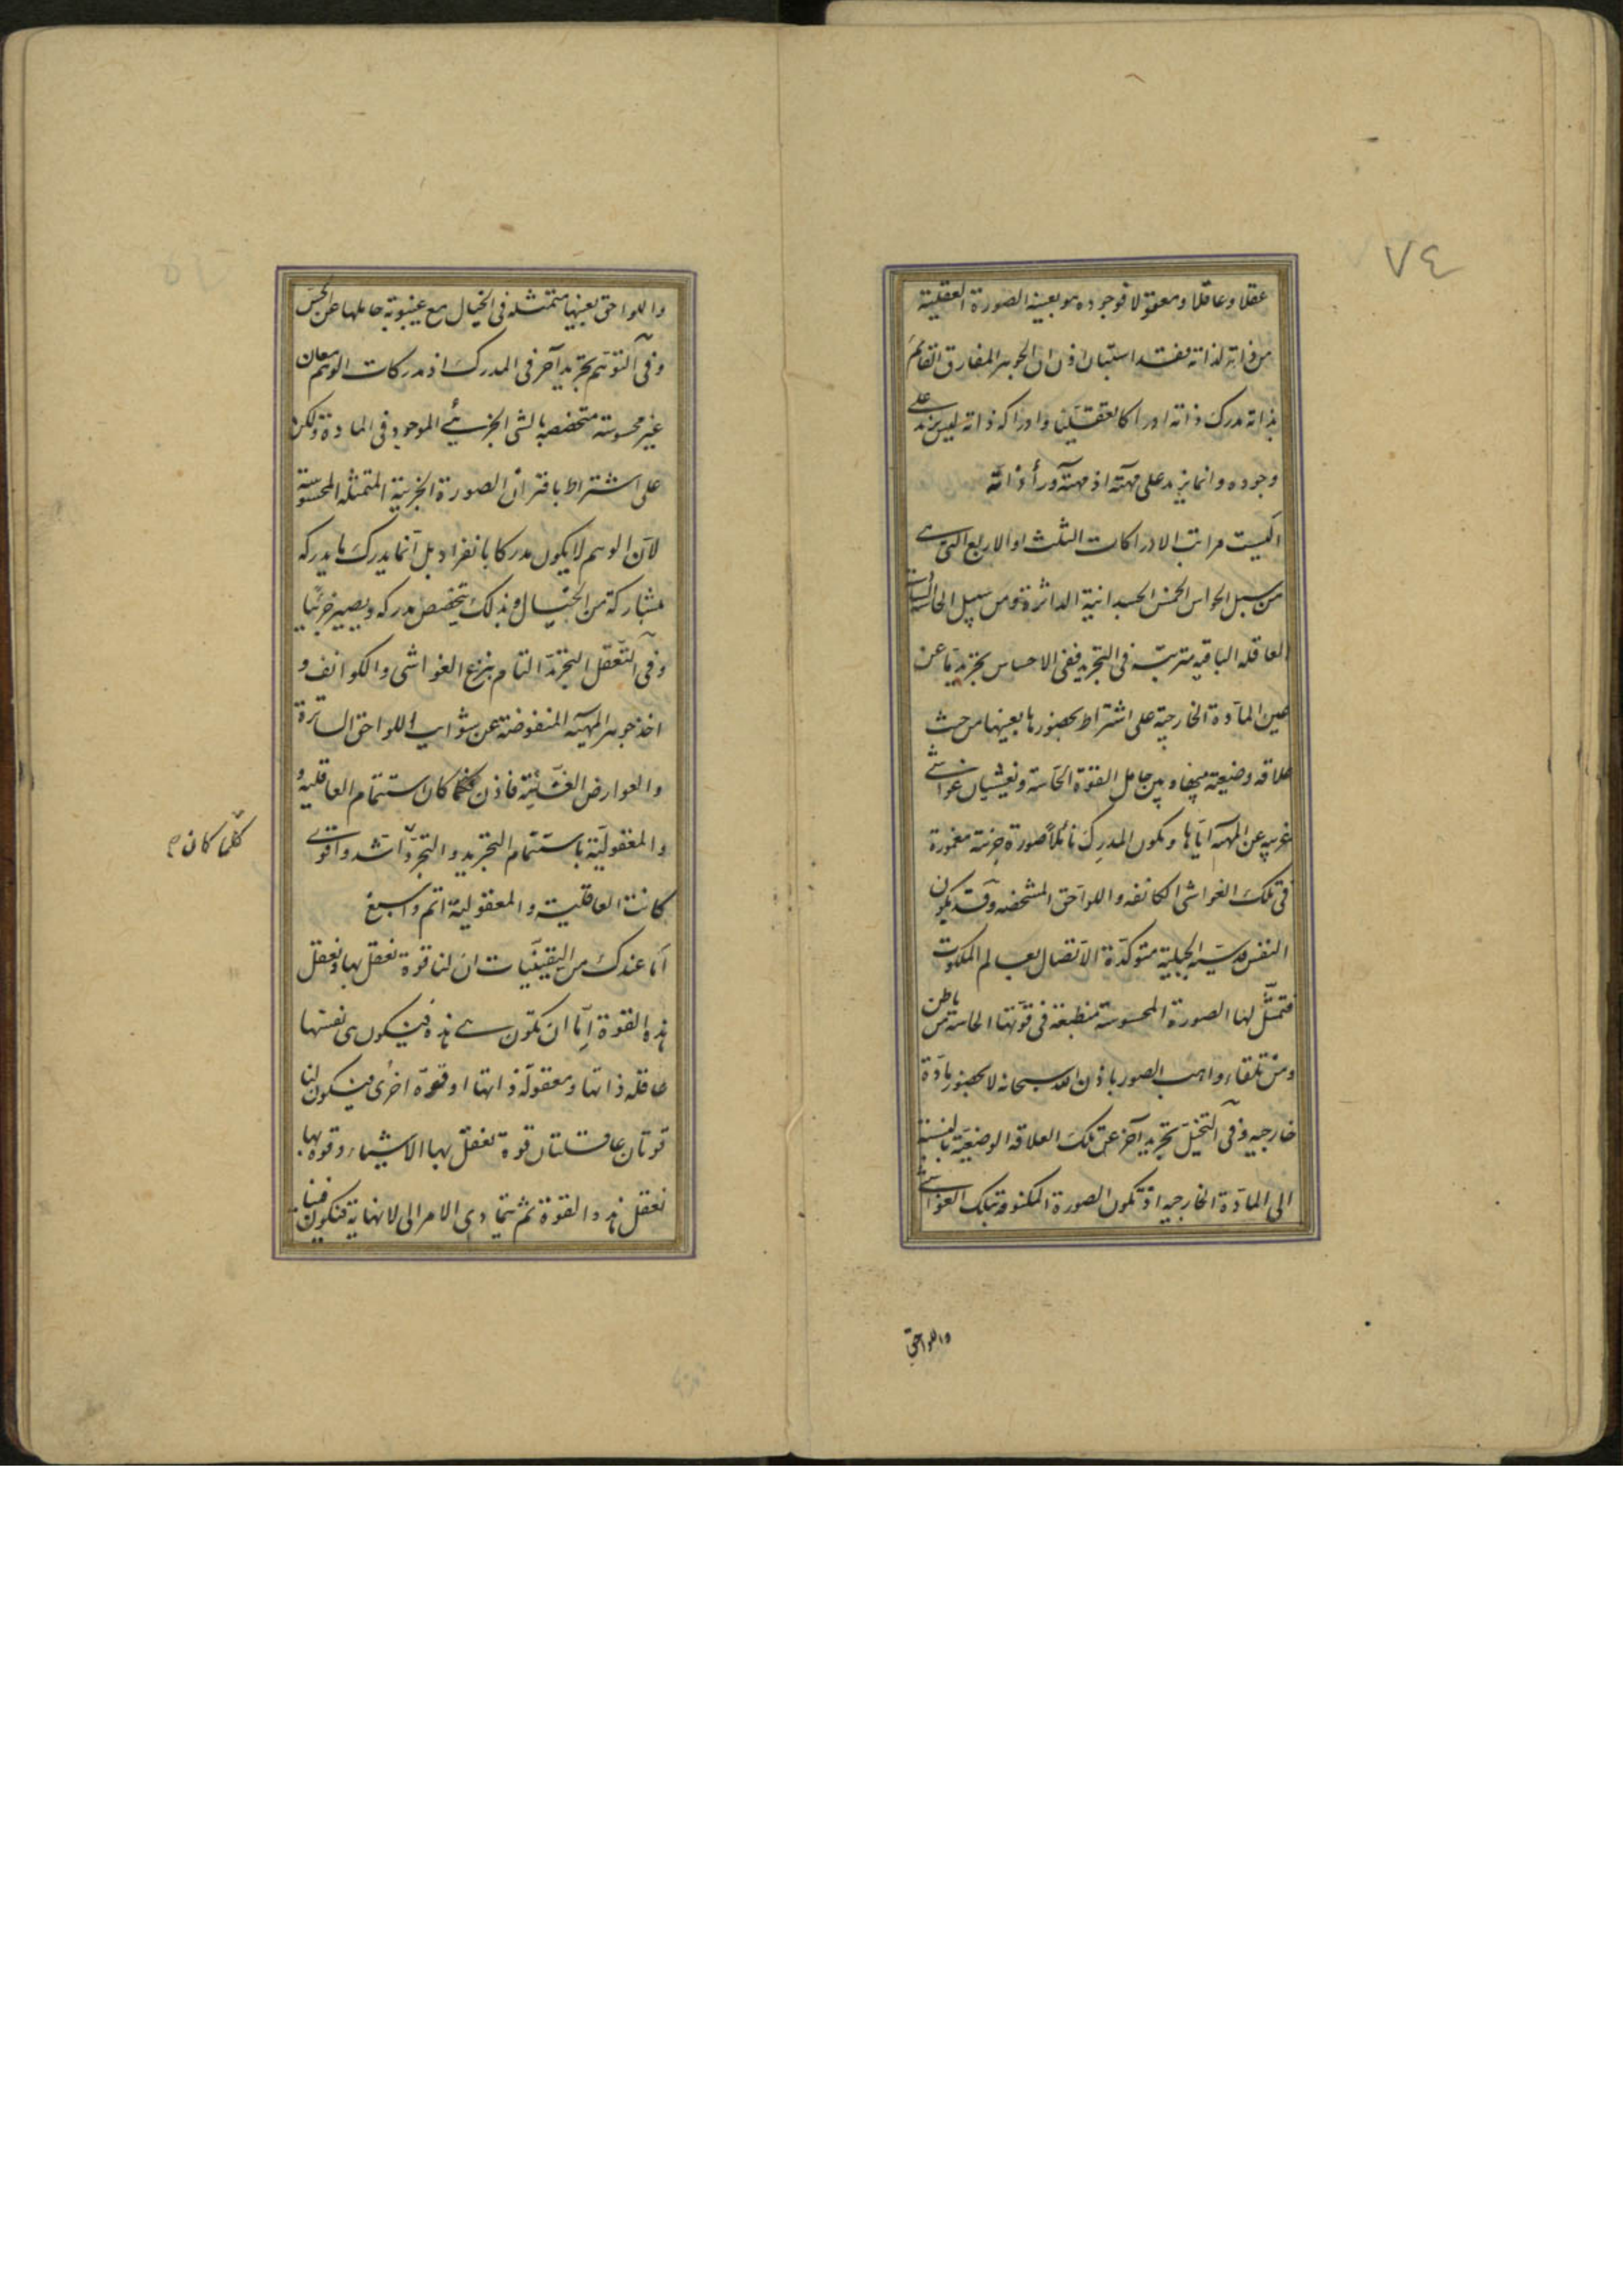 ٧٤
عقلا وعاقلا ومعقولا فوجوده هو بعينه الصورة العقلية
من ذاته لذاته فقد استبان اذن ان الجوهر المفارق القائم
بذاته مدرك ذاته ادراكا تعقليا وادراكه ذاته ليس يزيد على
وجوده وانما يزيد على مهيته اذ مهيته وراء ذاته
اليست مراتب الادراكات الثلث او الاربع التى هى
من سبيل الحواس الخمس الجسدانية الداثرة ومن سبيل الحاسة
العاقله الباقيه مترتبة فى التجريد ففى الاحساس تجريد ما عن
عين المادة الخارجية على اشتراط بحضورها بعينها من حيث
علاقه وضعية بينها وبين حامل القوة الحاسة وغشيان غواشى
غريبه عن المهية اياها ويكون المدرك نائلا صورة جزئية مغمورة
فى تلك الغواشى المكانفه واللواحق المشخصه وقد يكون
النفس قدسية الجبلية متوكدة الاتصال بعالم الملكوت
فتمثل لها الصورة المحسوسة منطبعة فى قوتها الحاسة من باطن
ومن تلقاء واهب الصور باذن الله سبحانه لا بحضور مادة
خارجيه وفى التخيل تجريد آخر عن تلك العلاقه الوضعية بالنسبة
الى المادة الخارجيه اذ تكون الصورة المكنوفة بتلك الغواشى
واللواحق
واللواحق بعينها متمثله فى الخيال مع غيبوبة حاملها عن الحس
وفى التوهم تجريد آخر فى المدرك اذ مدركات الوهم معان
غير محسوسة متخصصه بالشى الجزئى الموجود فى المادة ولكن
على اشتراط باقتران الصورة الجزئية المتمثله المحسوسة
لان الوهم لا يكون مدركا بانفراد بل انما يدرك ما يدركه
بمشاركة من الخيال وبذلك يتخصص مدركه ويصير جزئيا
وفى التعقل التجريد التام بنزع الغواشى والكوانف و
اخذ جوهر المهية المنفوضة عن شوايب اللواحق الساترة
والعوارض الغشائية فاذن كلما كان استتمام العاقلية و
والمعقولية باستتمام التجريد والتجرد اشد واقوى
كلما كان
كانت العاقلية والمعقولية اتم واسبغ
اما عندك من اليقينيات ان لنا قوة نعقل بها ونعقل
هذه القوة اما ان تكون هى هذه فيكون هى نفسها
عاقله ذاتها ومعقولة ذاتها او قوة اخرى فيكون لنا
قوتان عاقلتان قوة نعقل بها الاشياء وقوة بها
نعقل هذه القوة ثم يتمادى الامر الى لا نهاية فتكون فينا